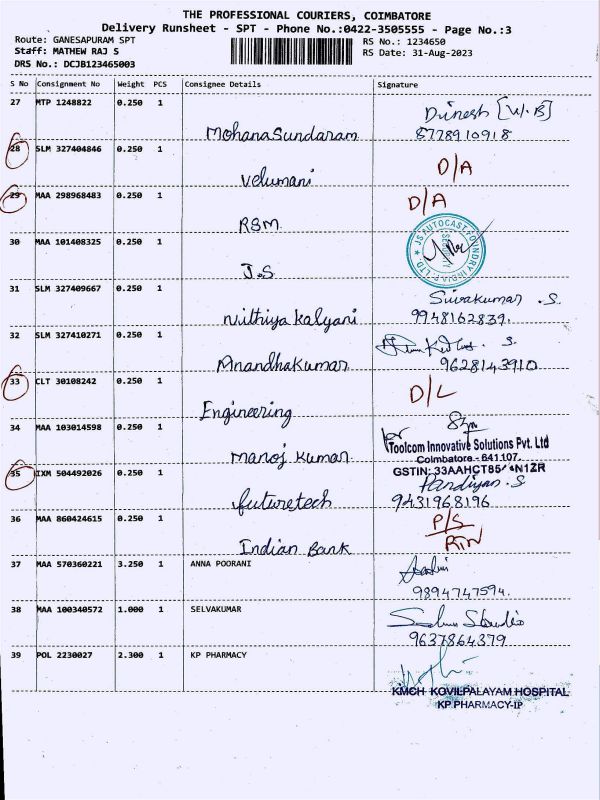 THE PROFESSIONAL COURIERS, COIMBATORE
Delivery Runsheet - SPT - Phone No.:0422-3505555 - Page No.:3
Route: GANESAPURAM SPT
Staff: MATHEW RAJ S
DRS No.: DCJB123465003
RS No.: 1234650
RS Date: 31-Aug-2023
S No Consignment No Weight PCS Consignee Details Signature
27 MTP 1248822 0.250 1 Mohanasundaram Dinesh [W.B]
8778910918
28 SLM 327404846 0.250 1 Velumani D/A
29 MAA 298968483 0.250 1 RSM D/A
30 MAA 101408325 0.250 1 J.S JS AUTOCAST FOUNDRY INDIA P. LTD
SECURITY
31 SLM 327409667 0.250 1 Nithiya Kalyani Sivakumar .S
9948162839.
32 SLM 327410271 0.250 1 Anandhakumar S.
9628143910
33 CLT 30108242 0.250 1 Engineering D/L
34 MAA 103014598 0.250 1 Manoj Kumar. for
Toolcom Innovative Solutions Pvt. Ltd
Coimbatore - 641107.
35 IXM 504492026 0.250 1 futuretech Pandiyan .S
9431968196
36 MAA 860424615 0.250 1 Indian Bank P/S
RTN
37 MAA 570360221 3.250 1 ANNA POORANI
9894747594.
38 MAA 100340572 1.000 1 SELVAKUMAR
9637864379
39 POL 2230027 2.300 1 KP PHARMACY
KMCH KOVILPALAYAM HOSPITAL
KP PHARMACY-IP